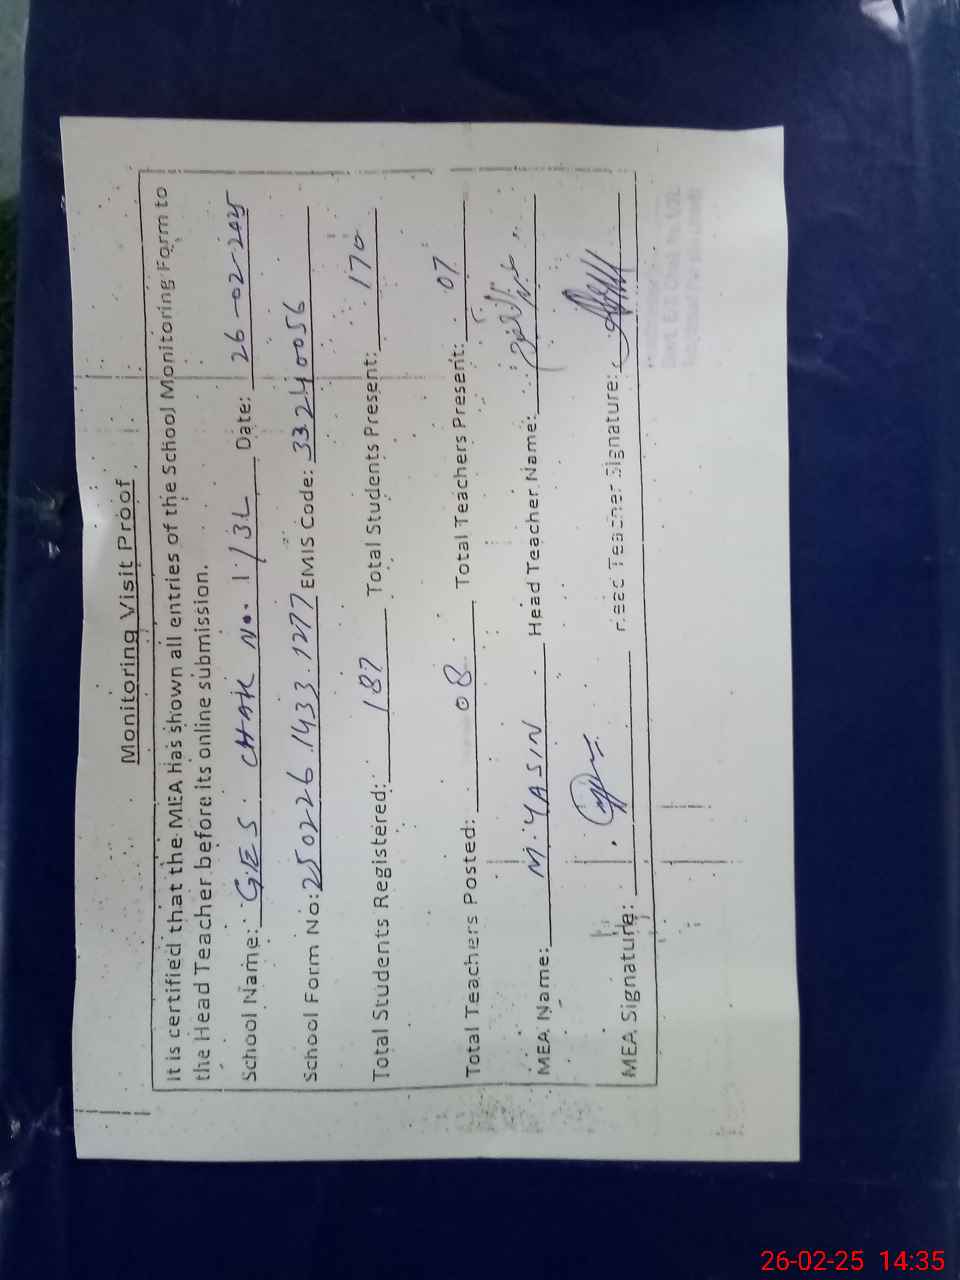 Monitoring Visit Proof
It is certified that the MEA has shown all entries of the School Monitoring Form to
the Head Teacher before its online submission.
School Name: G.E.S CHAK No. 1/3L Date: 26-02-2025
School Form No: 250226.1433.1277 EMIS Code: 33240056
Total Students Registered: 187 Total Students Present: 170
Total Teachers Posted: 08 Total Teachers Present: 07
MEA Name: M.YASIN Head Teacher Name:
MEA Signature: Head Teacher Signature:
26-02-25 14:35